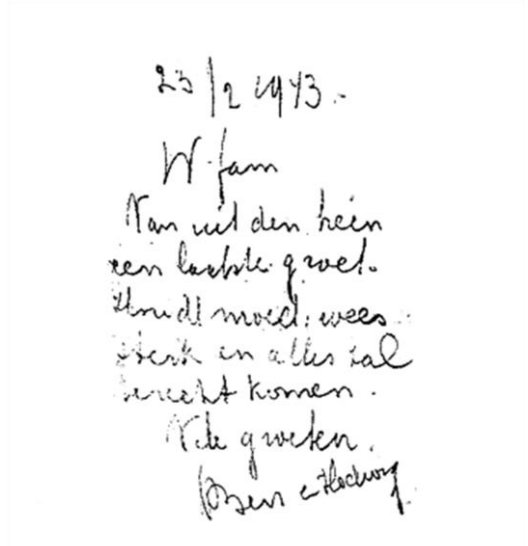 23/2 1943.-
W. fam
Van uit den trein
een laatste groet.
Houdt moed, wees
sterk en alles zal
terecht komen.
Vele groeten.
Ben en Hedwig